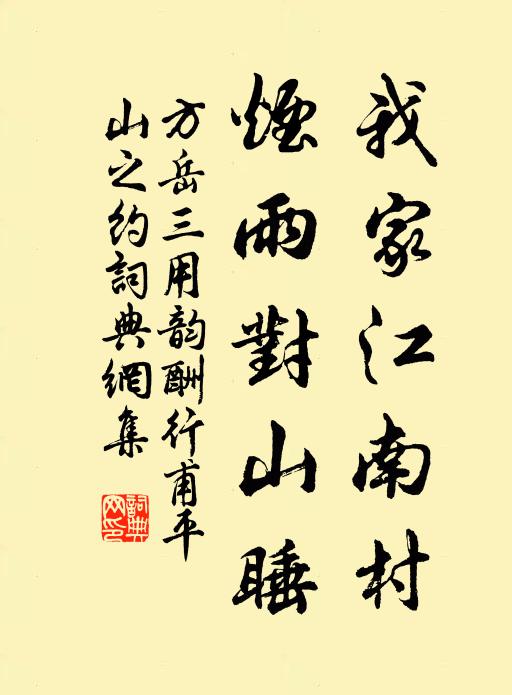 我家江南村
煙雨對山睡
方岳三用韵酬行甫平
山之約詞典網集
詞典
网印